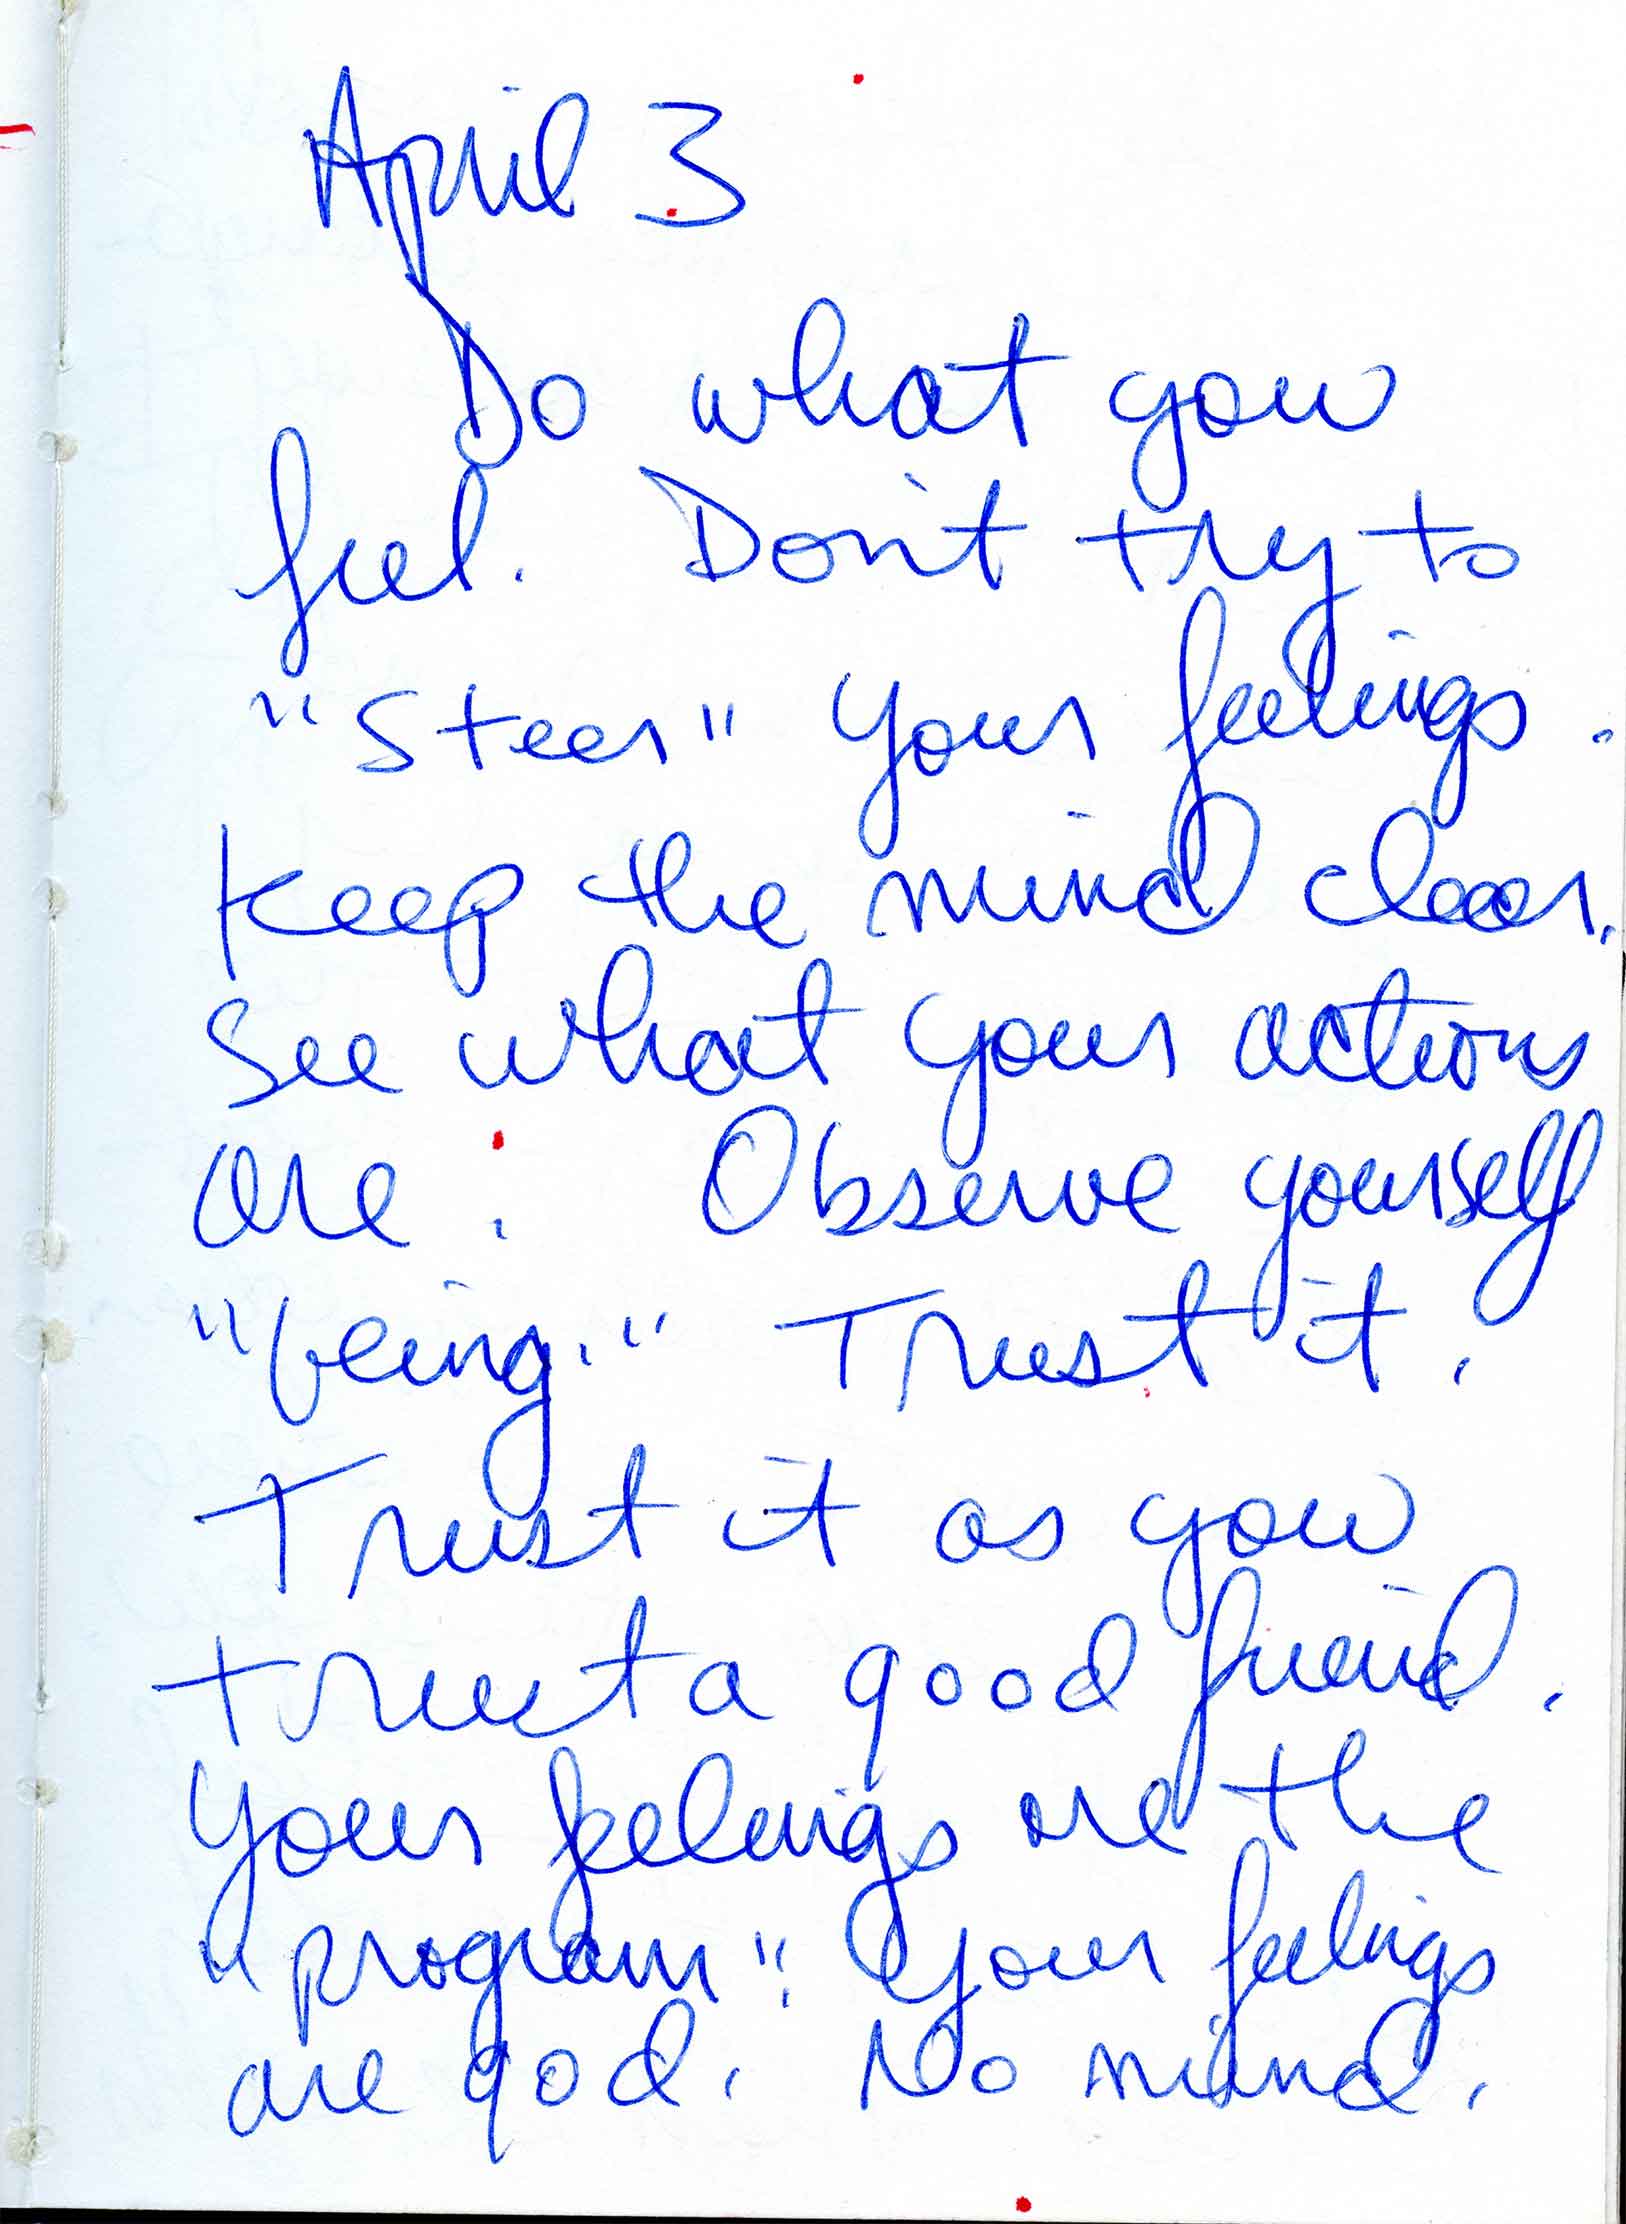 April 3
Do what you
feel. Don't try to
"steer" your feelings.
Keep the mind clear.
See what your actions
are. Observe yourself
"being." Trust it.
Trust it as you
trust a good friend.
Your feelings are the
"program". Your feelings
are god. No mind.